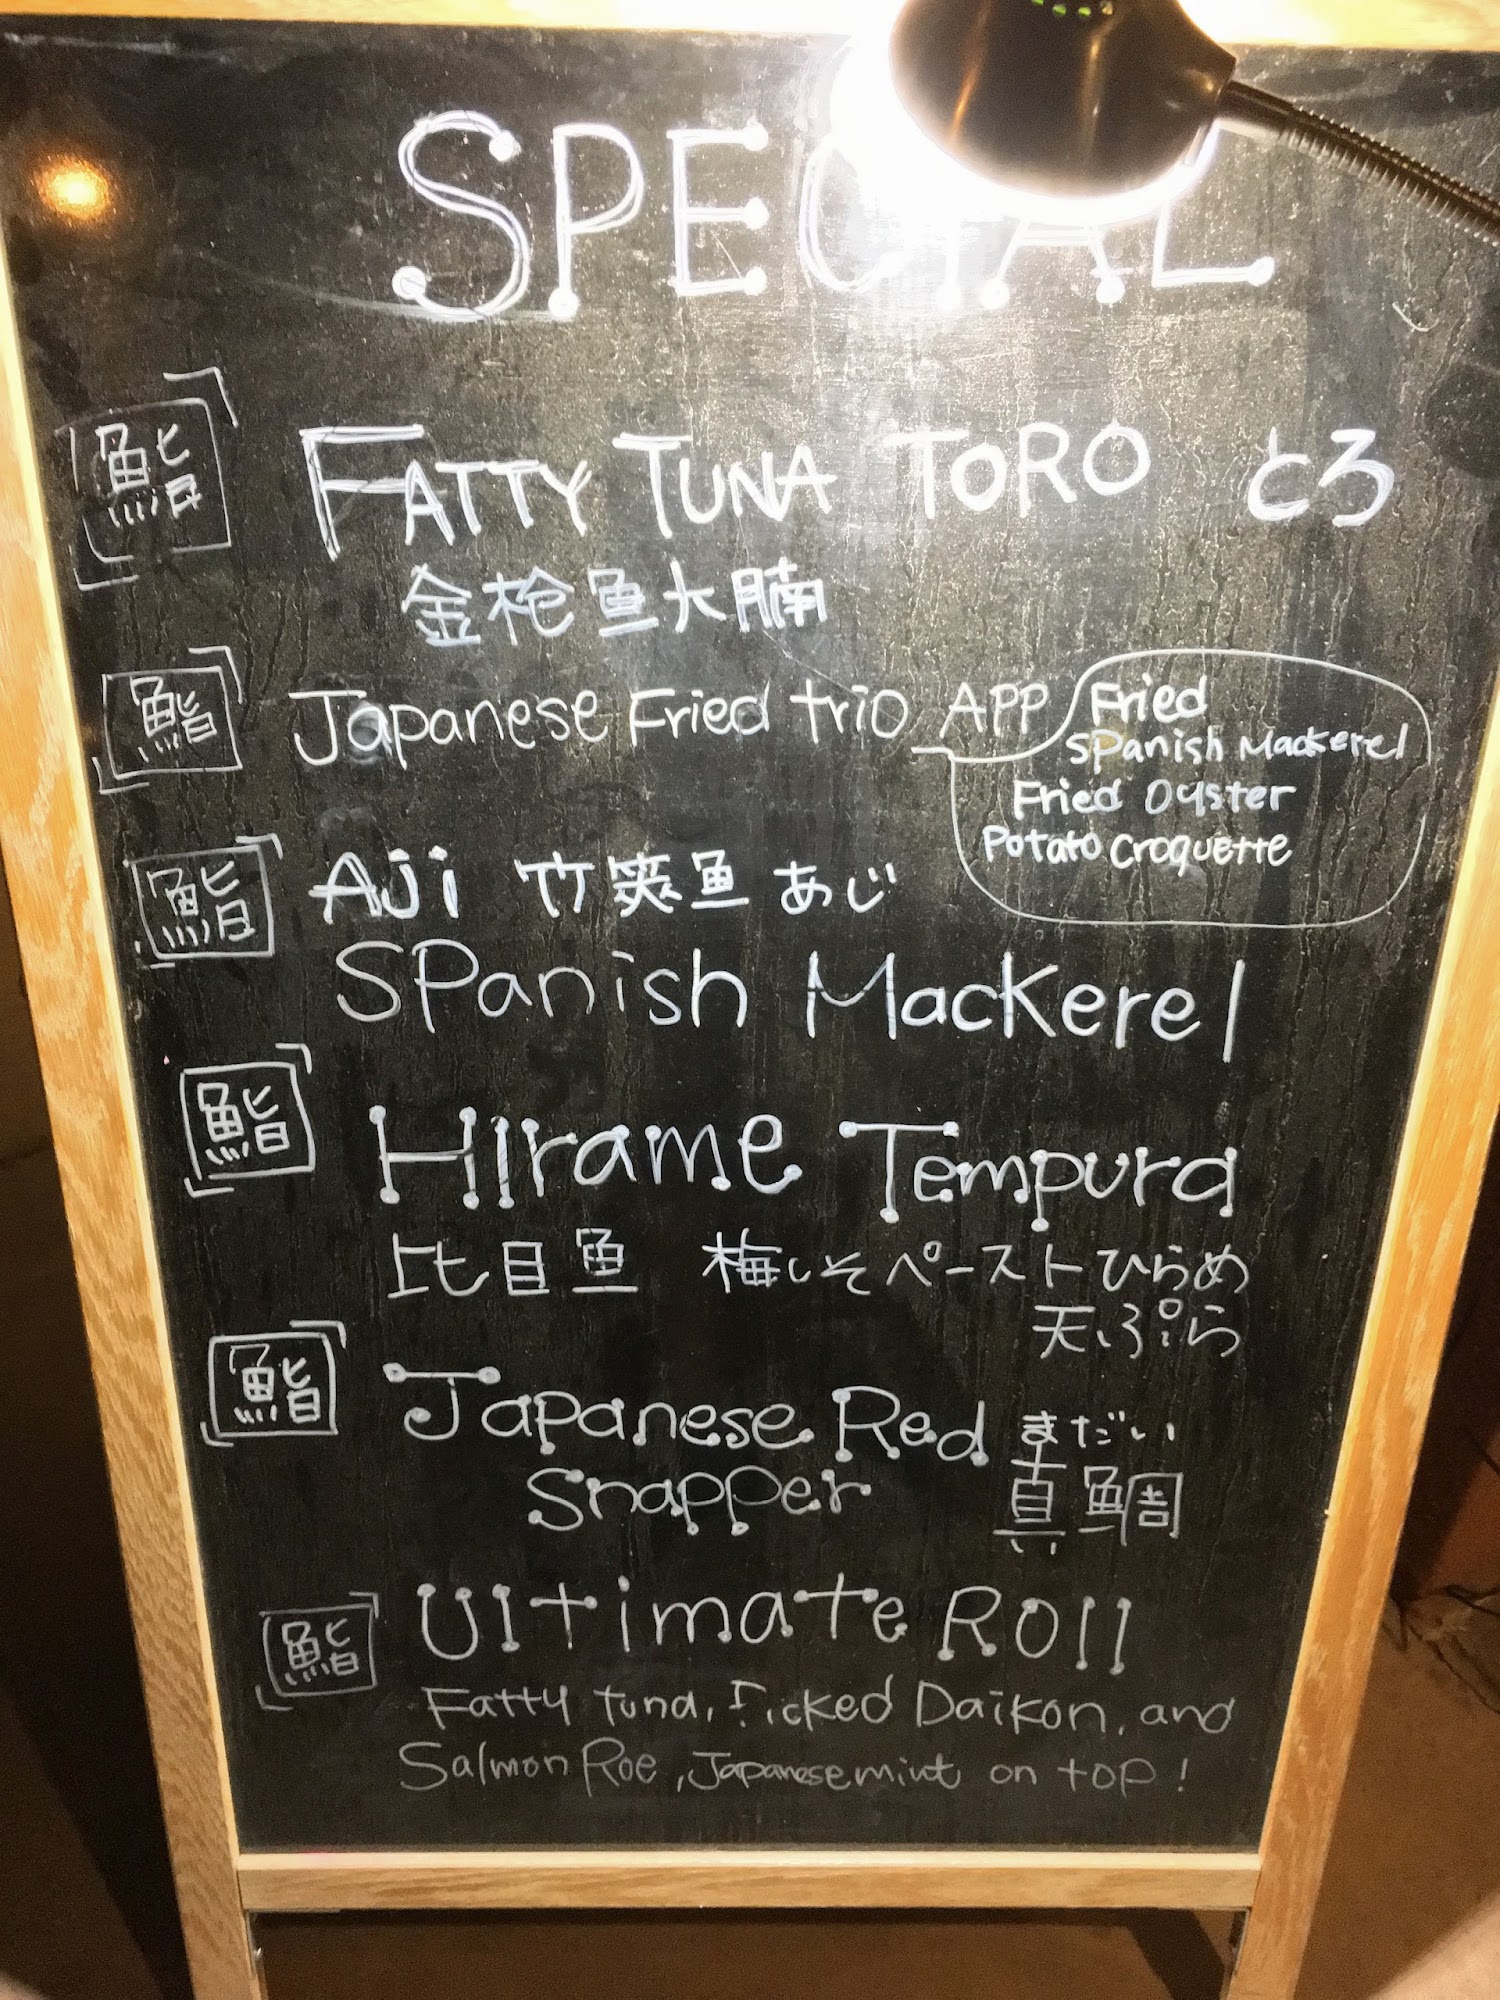 SPECIAL
鮨 FATTY TUNA TORO とろ
金枪鱼大腩
鮨 Japanese Fried trio APP
Fried
Spanish Mackerel
Fried Oyster
Potato Croquette
鮨 Aji 竹筴魚 あじ
Spanish Mackerel
鮨 Hirame Tempura
比目魚 梅しそペーストひらめ
天ぷら
鮨 Japanese Red まだい
Snapper 真鯛
鮨 Ultimate Roll
Fatty tuna, Picked Daikon, and
Salmon Roe, Japanese mint on top!